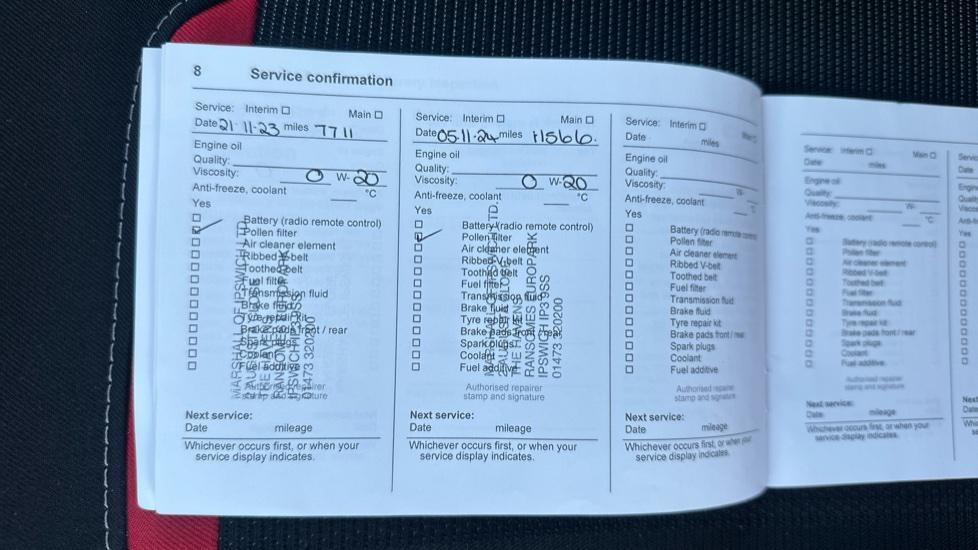 8 Service confirmation
Service: Interim ☐ Main ☐
Date 21-11-23 miles 7711
Engine oil
Quality:
Viscosity: 0 W-20
Anti-freeze, coolant °C
Yes
Battery (radio remote control)
Pollen filter
Air cleaner element
Ribbed V-belt
Toothed belt
Fuel filter
Transmission fluid
Brake fluid
Tyre repair kit
Brake pads front / rear
Spark plugs
Coolant
Fuel additive
MARSHALL OF IPSWICH LTD
IPSWICH
01473
Authorised repairer
stamp and signature
Next service:
Date mileage
Whichever occurs first, or when your
service display indicates.
Service: Interim ☐ Main ☐
Date 05-11-24 miles 11566.
Engine oil
Quality:
Viscosity: 0 W-20
Anti-freeze, coolant °C
Yes
Battery (radio remote control)
Pollen filter
Air cleaner element
Ribbed V-belt
Toothed belt
Fuel filter
Transmission fluid
Brake fluid
Tyre repair kit
Brake pads front / rear
Spark plugs
Coolant
Fuel additive
LTD.
RANSOMES EUROPARK
IPSWICH IP3 9SS
01473 320200
Authorised repairer
stamp and signature
Next service:
Date mileage
Whichever occurs first, or when your
service display indicates.
Service: Interim ☐ Main ☐
Date miles
Engine oil
Quality:
Viscosity: W-
Anti-freeze, coolant °C
Yes
Battery (radio remote control)
Pollen filter
Air cleaner element
Ribbed V-belt
Toothed belt
Fuel filter
Transmission fluid
Brake fluid
Tyre repair kit
Brake pads front / rear
Spark plugs
Coolant
Fuel additive
Authorised repairer
stamp and signature
Next service:
Date mileage
Whichever occurs first, or when your
service display indicates.
Service: Interim ☐ Main ☐
Date miles
Engine oil
Quality:
Viscosity: W-
Anti-freeze, coolant °C
Yes
Battery (radio remote control)
Pollen filter
Air cleaner element
Ribbed V-belt
Toothed belt
Fuel filter
Transmission fluid
Brake fluid
Tyre repair kit
Brake pads front / rear
Spark plugs
Coolant
Fuel additive
Authorised repairer
stamp and signature
Next service:
Date mileage
Whichever occurs first, or when your
service display indicates.